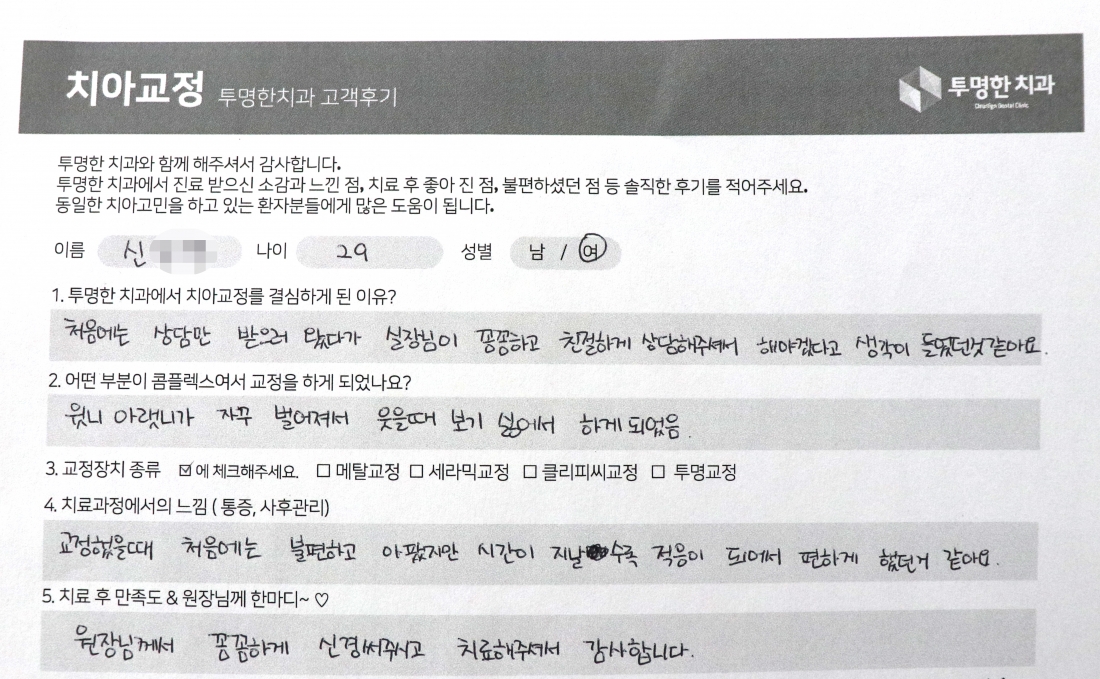 치아교정 투명한치과 고객후기
투명한 치과
Clearlign Dental Clinic
투명한 치과와 함께 해주셔서 감사합니다.
투명한 치과에서 진료 받으신 소감과 느낀 점, 치료 후 좋아 진 점, 불편하셨던 점 등 솔직한 후기를 적어주세요.
동일한 치아고민을 하고 있는 환자분들에게 많은 도움이 됩니다.
이름 신 나이 29 성별 남 / 여
1. 투명한 치과에서 치아교정를 결심하게 된 이유?
처음에는 상담만 받으러 왔다가 실장님이 꼼꼼하고 친절하게 상담해주셔서 해야겠다고 생각이 들었던것같아요.
2. 어떤 부분이 콤플렉스여서 교정을 하게 되었나요?
윗니 아랫니가 자꾸 벌어져서 웃을때 보기 싫어서 하게되었음.
3. 교정장치 종류 ☑에 체크해주세요. □ 메탈교정 □ 세라믹교정 □ 클리피씨교정 □ 투명교정
4. 치료과정에서의 느낌 ( 통증, 사후관리)
교정했을때 처음에는 불편하고 아팠지만 시간이 지날수록 적응이 되어서 편하게 했던거 같아요.
5. 치료 후 만족도 & 원장님께 한마디~ ♡
원장님께서 꼼꼼하게 신경써주시고 치료해주셔서 감사합니다.